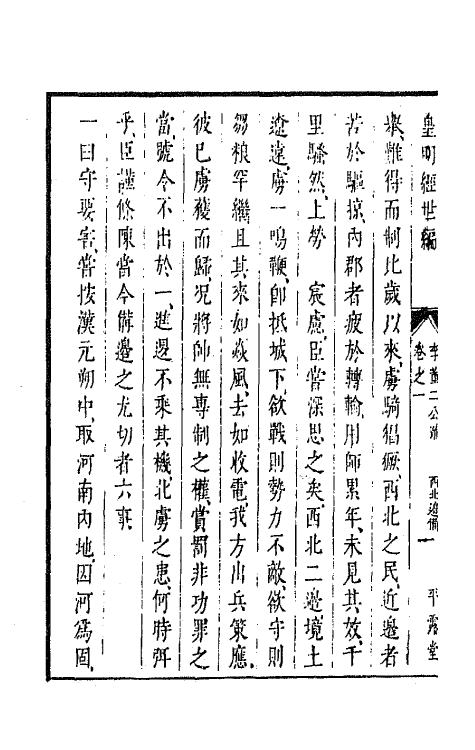 皇明經世編
李董二公疏
卷之一
西北邊備一
平露堂
衆、惟得而制比歲以來、虜騎猖獗、西北之民、近邊者
苦於驅掠、內郡者疲於轉輸、用師累年、未見其效、千
里騷然、上勞　宸慮、臣嘗深思之矣、西北二邊、境土
遼遠、虜一鳴鞭、卽抵城下、欲戰則勢力不敵、欲守則
芻粮罕繼、且其來如猋風、去如收電、我方出兵策應、
彼已虜獲而歸、况將帥無專制之權、賞罰非功罪之
當、號令不出於一、進退不乘其機、北虜之患、何時弭
乎、臣謹條陳當今備邊之尤切者六事、
一曰守要害、嘗按漢元朔中、取河南內地、因河爲固、